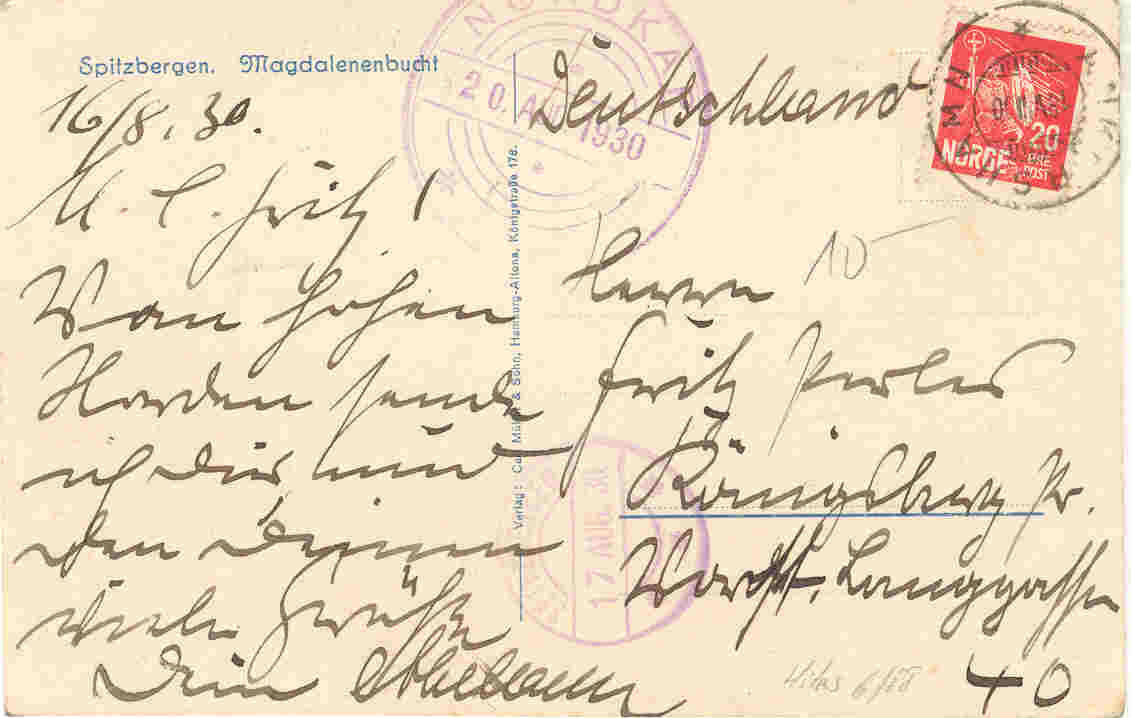 Spitzbergen. Magdalenenbucht
16/8. 30.
M. l. Fritz!
Vom hohen
Norden sende
ich Dir und
den Deinen
viele Grüße
Dein
Verlag: Carl Müller & Sohn, Hamburg-Altona, Königstraße 178.
NORDKAP
20. AUG. 1930
17 AUG. 30
Deutschland
NORGE
20
ØRE
POST
HAMMERFEST
10
Herrn
Fritz Perles
Königsberg Pr.
Vorst. Langgasse
40